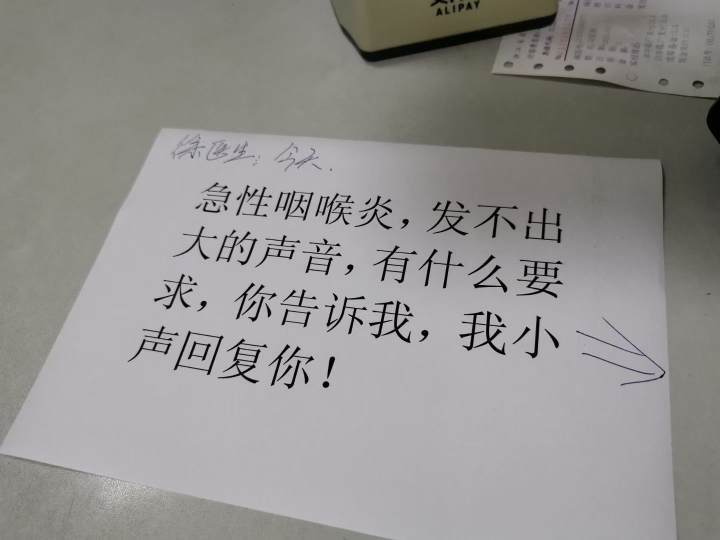 ALIPAY
徐医生：今天.
急性咽喉炎，发不出
大的声音，有什么要
求，你告诉我，我小
声回复你！